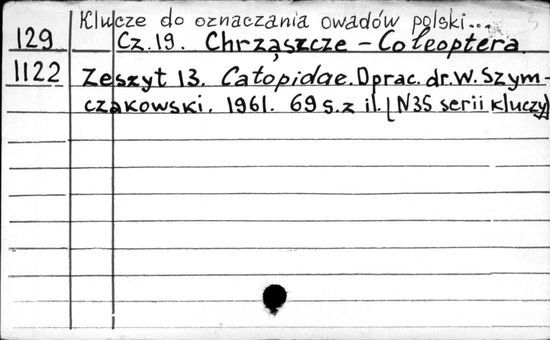 Klucze do oznaczania owadów polski...
129 Cz.19. Chrząszcze – Coleoptera.
1122 Zeszyt 13. Catopidae. Oprac. dr. W. Szym-
czakowski. 1961. 69 s. z il. (N35 serii kluczy)